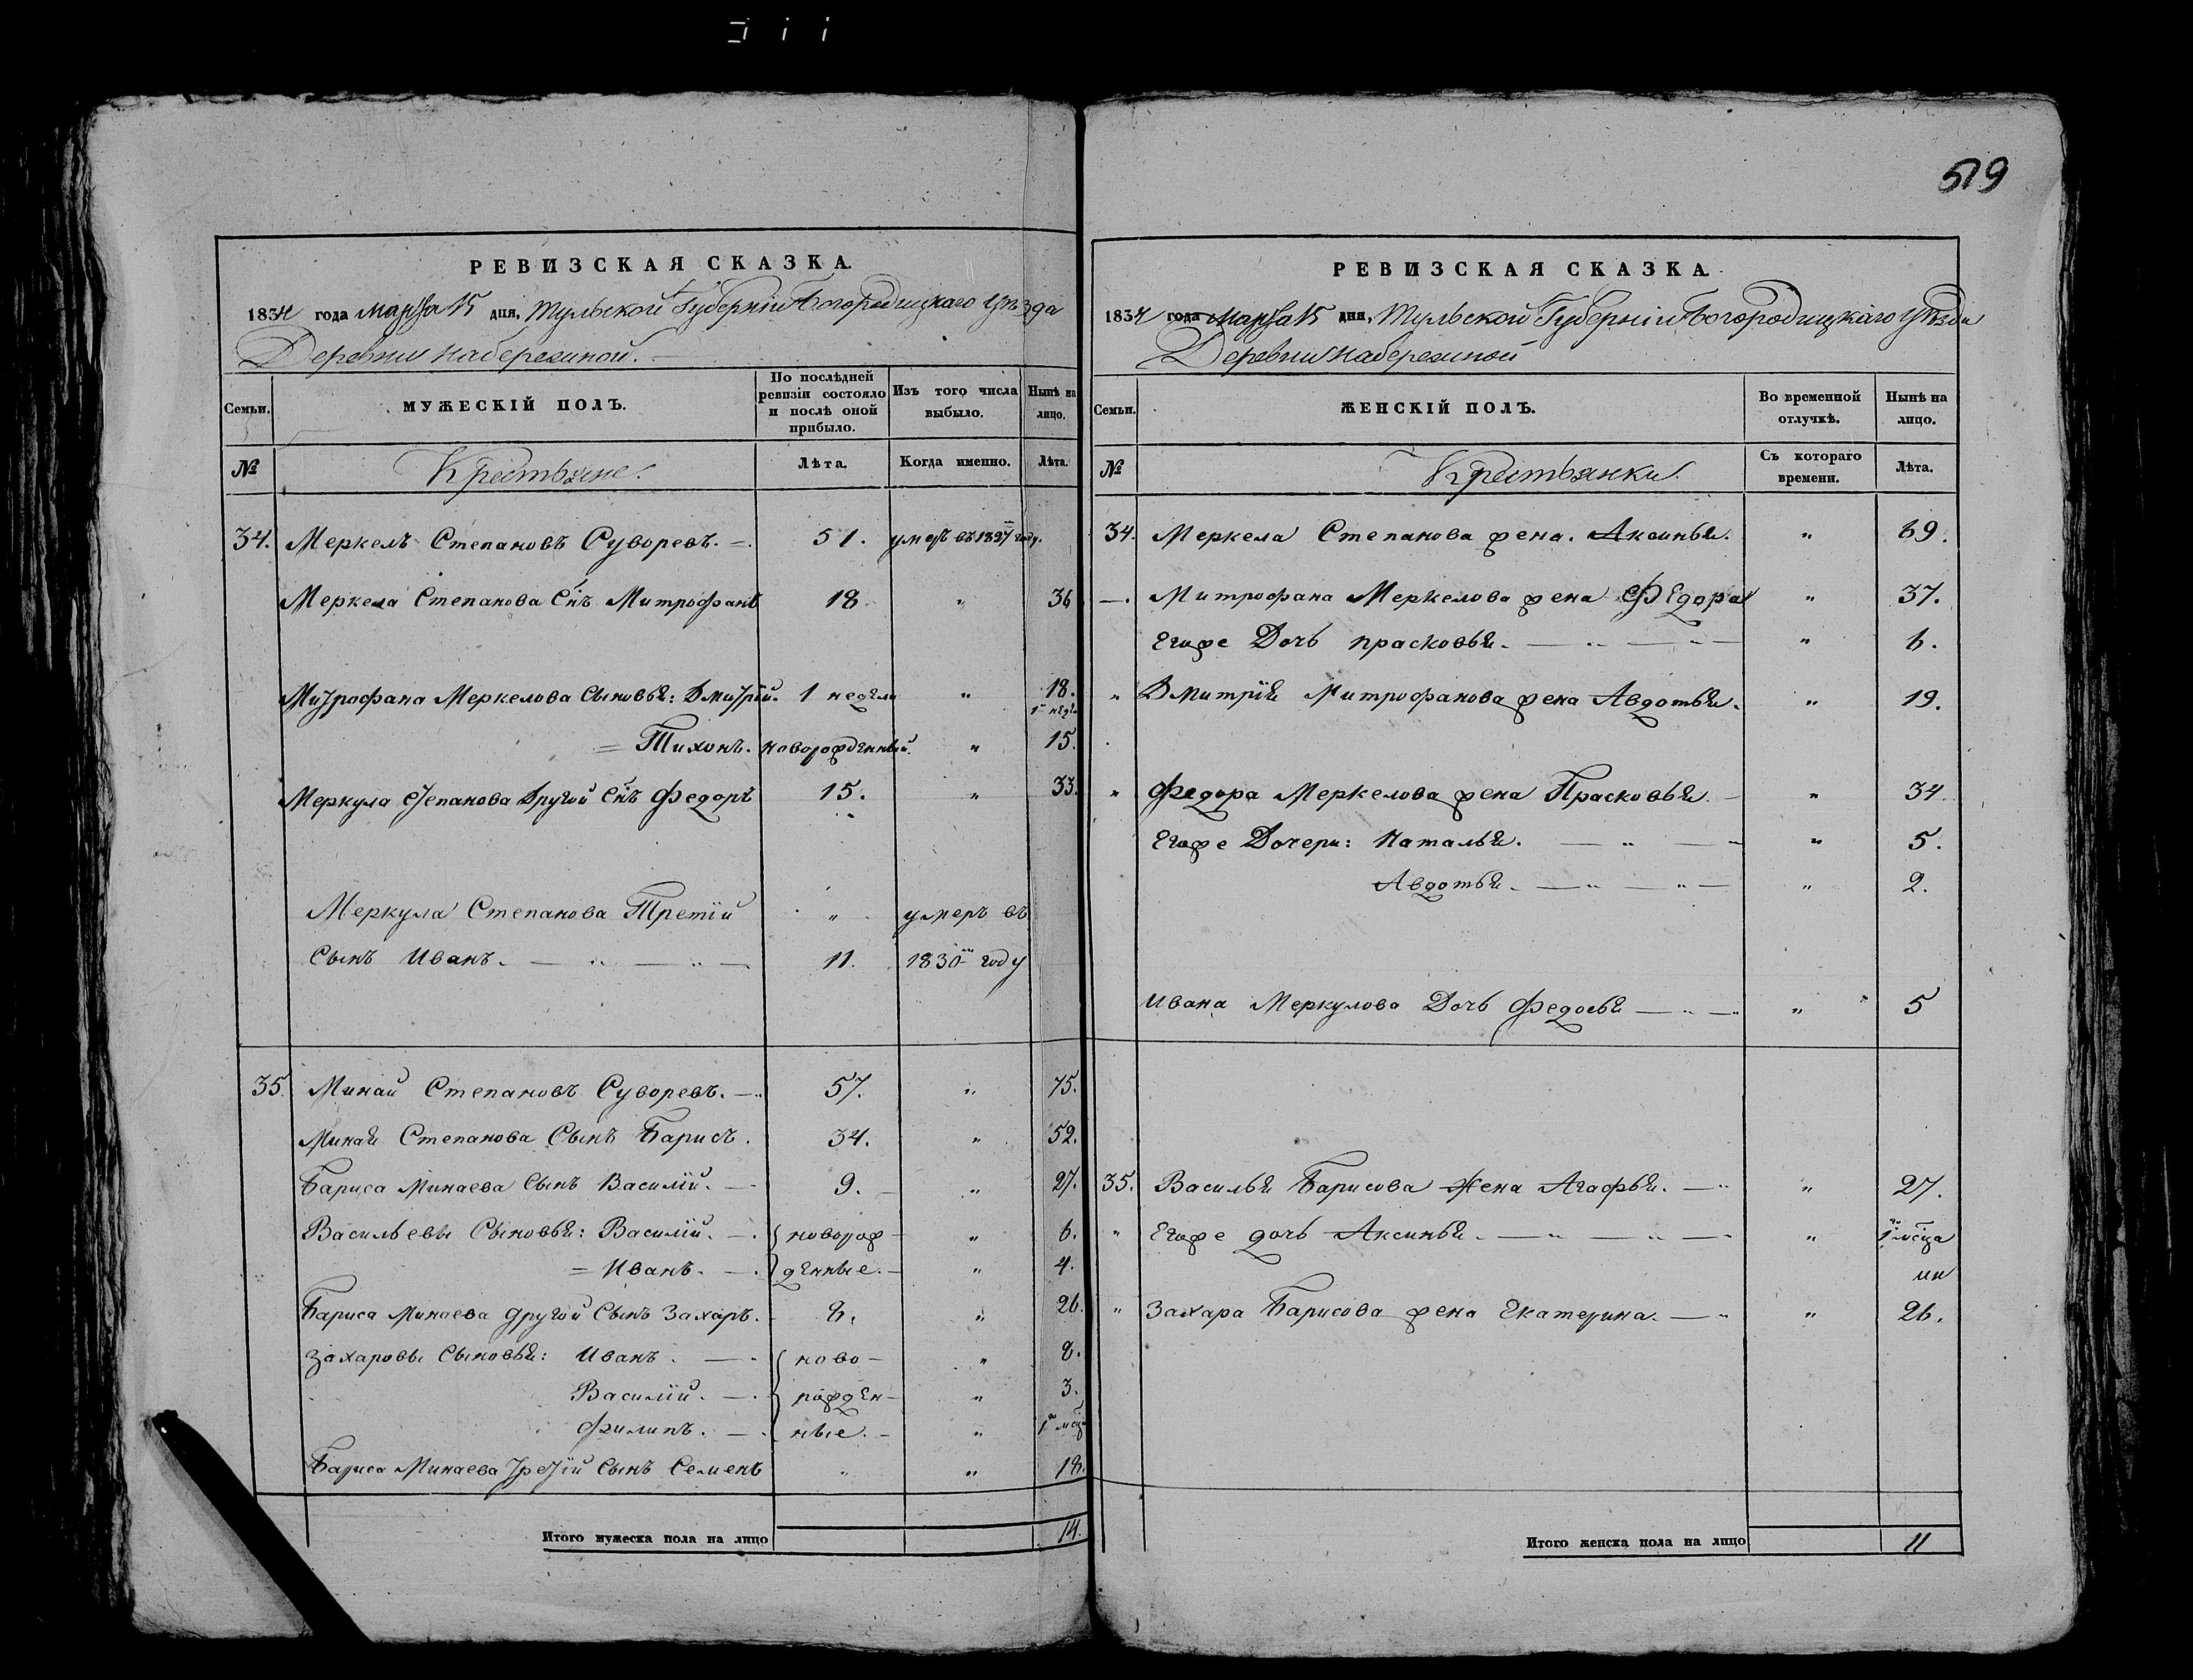 519
РЕВИЗСКАЯ СКАЗКА.
1834 года марта 15 дня, Тульской Губерніи Богородицкаго уѣзда
Деревни Набережной.
Семьи.
МУЖЕСКІЙ ПОЛЪ.
По послѣдней ревизіи состояло и послѣ оной прибыло.
Изъ того числа выбыло.
Нынѣ на лицо.
№
Крестьяне.
Лѣта.
Когда именно.
Лѣта.
34. Меркелъ Степановъ Суворевъ. 51. умеръ въ 1827 году.
Меркела Степанова Снъ Митрофанъ 18 " 36
Митрофана Меркелова Сыновья: Дмитрій. 1 недели " 18. 1 недел
Тихонъ. новорожденный. " 15.
Меркула Степанова Другой Снъ Федоръ 15. " 33.
Меркула Степанова Третій " умеръ въ
Сынъ Иванъ. 11. 1830 году
35. Минай Степановъ Суворевъ. 57. " 75.
Миная Степанова Сынъ Барисъ. 34. " 52.
Бариса Минаева Сынъ Василій. 9. " 27.
Васильевы Сыновья: Василій. новорож " 6.
Иванъ. денные. " 4.
Бариса Минаева другой Сынъ Захаръ. 8. " 26.
Захаровы Сыновья: Иванъ. ново- " 8.
Василій. рожден- " 3.
Филипъ. ные. " 1 мсца
Бариса Минаева Третій Сынъ Семенъ " " 18.
Итого мужеска пола на лицо 14.
РЕВИЗСКАЯ СКАЗКА.
1834 года марта 15 дня, Тульской Губерніи Богородицкаго уѣзда
Деревни Набережной
Семьи.
ЖЕНСКІЙ ПОЛЪ.
Во временной отлучкѣ.
Нынѣ на лицо.
№
Крестьянки.
Съ котораго времени.
Лѣта.
34. Меркела Степанова жена. Аксинья. " 69.
Митрофана Меркелова жена Федора " 37.
Егоже Дочь Прасковья. " 6.
" Дмитрія Митрофанова жена Авдотья. " 19.
" Федора Меркелова жена Прасковья. " 34.
Егоже Дочери: Наталья. " 5.
Авдотья. " 2.
Ивана Меркулова Дочь Федосья " 5
35. Василья Барисова Жена Агафья. " 27.
" Егоже дочь Аксинья. " 1 мсца
" Захара Барисова жена Екатерина. " 26.
Итого женска пола на лицо 11